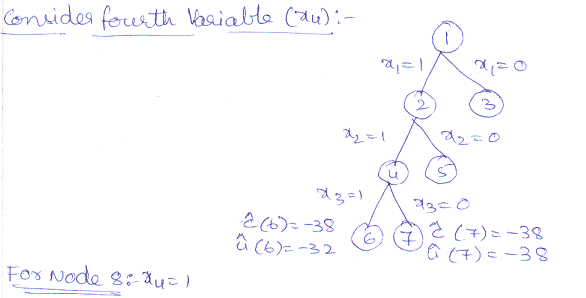 Consider fourth Variable (x4):-
1
x1=1 x1=0
2 3
x2=1 x2=0
4 5
x3=1 x3=0
ĉ(6)=-38 6 7 ĉ(7)=-38
û(6)=-32 û(7)=-38
For Node 8:- x4=1